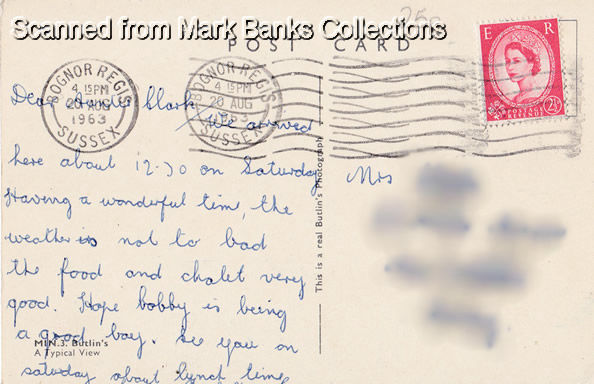 Scanned from Mark Banks Collections
25c
POST CARD
E R
2½D
POSTAGE
REVENUE
BOGNOR REGIS
4 15PM
20 AUG
1963
SUSSEX
BOGNOR REGIS
4 15PM
20 AUG
1963
SUSSEX
Dear Auntie Clark
We arrived
here about 12-30 on Saturday
Having a wonderful tim, the
weather is not to bad
the food and chalet very
good. Hope bobby is being
a good boy. See you on
saturday about lunch time
Mrs
This is a real Butlin's Photograph
MIN.3. Butlin's
A Typical View